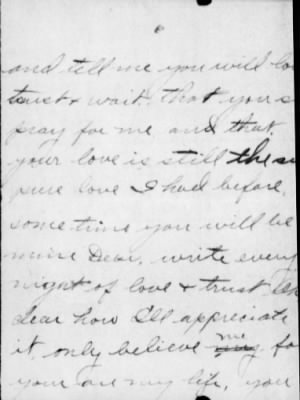 and tell me you will lo
trust & wait. that your s
pray for me and that
your love is still the sa
pure love I had before,
some time you will be
mine Dear. write every
night of love & trust
dear how I'll appreciate
it, only believe me fo
your are my life, your